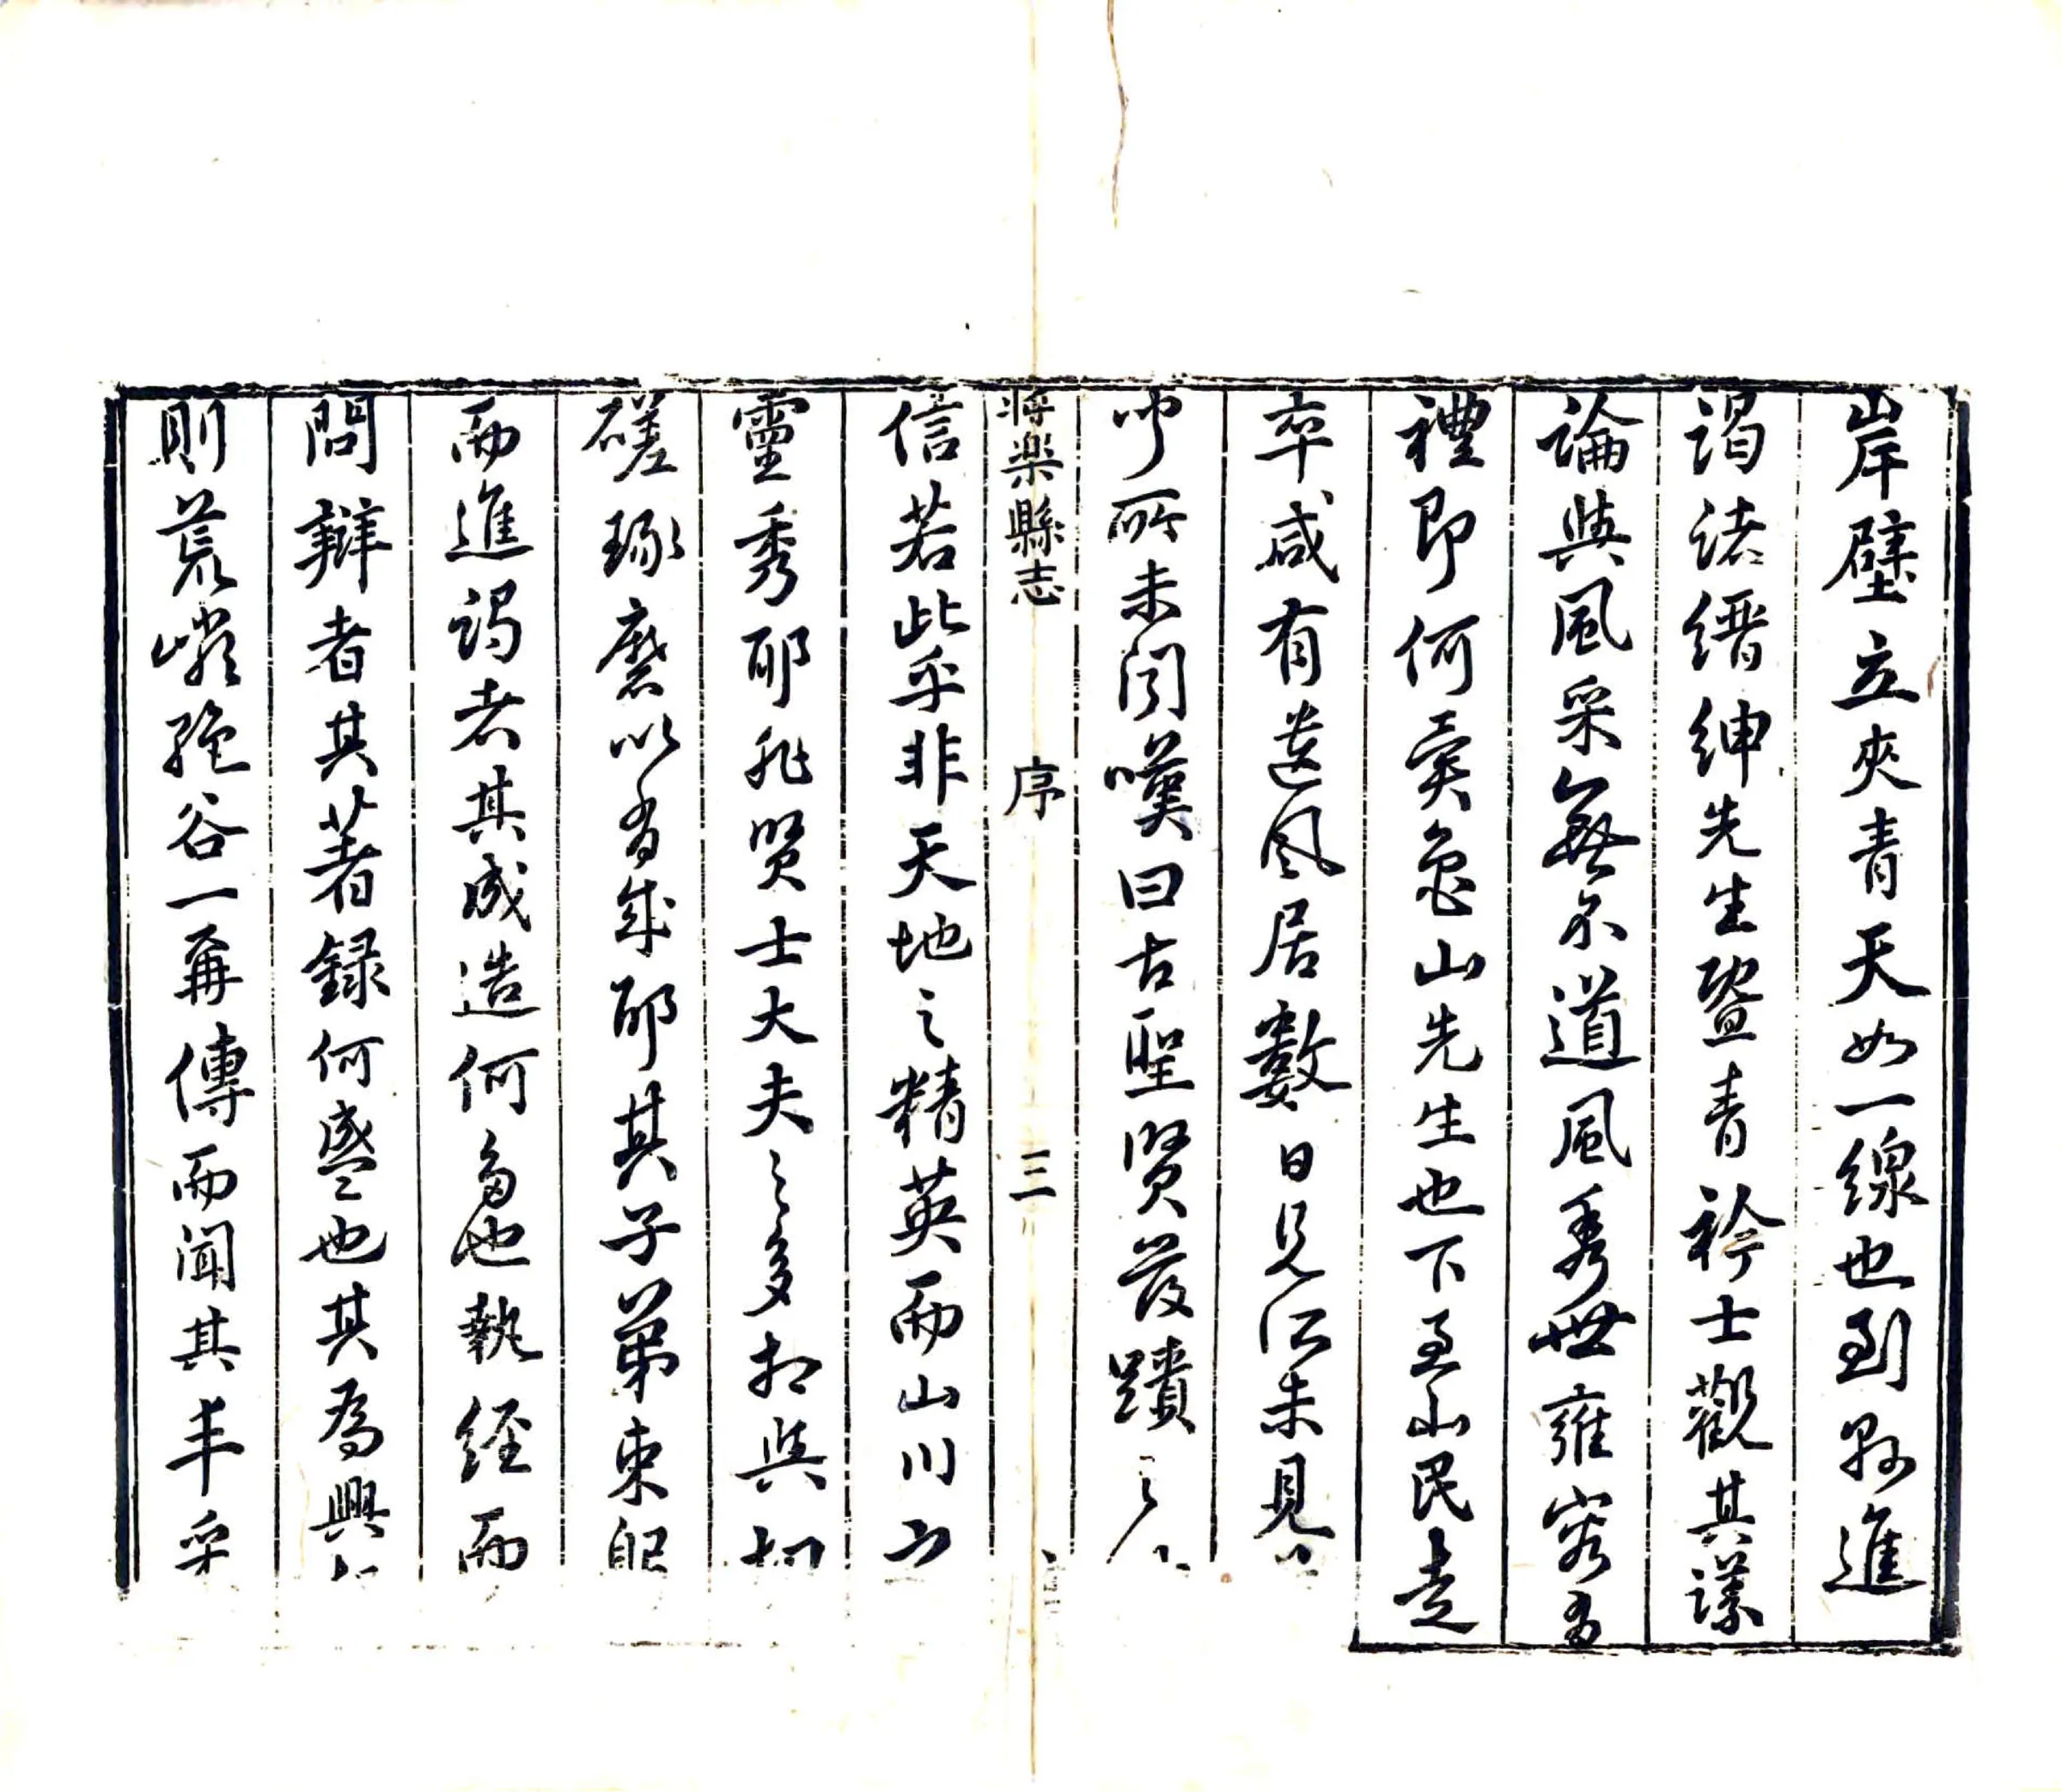 岸壁立夾青天如一線也到縣進
謁諸縉紳先生暨青衿士觀其議
論與風采無不道風秀世雍容為
禮即何異龜山先生也下至山民走
卒咸有遺風居數日見所未見
聞所未聞嘆曰古聖賢發蹟之
將樂縣志 序 三
信若此乎非天地之精英而山川之
靈秀耶非賢士大夫之多相與切
磋琢磨以為成耶其子弟束
而進謁者其成造何多也執經而
問辯者其著錄何盛也其為興
則荒巇絕谷一再傳而聞其丰采